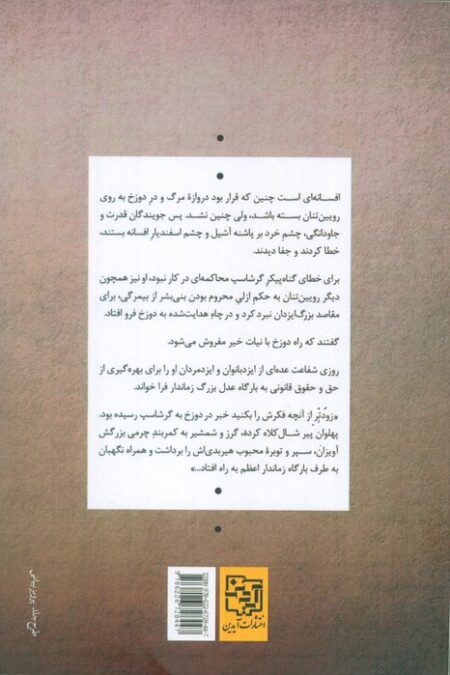 افسانه‌ای است چنین که قرار بود دروازهٔ مرگ و درِ دوزخ به روی
رویین‌تنان بسته باشد، ولی چنین نشد. پس جویندگان قدرت و
جاودانگی، چشمِ خرد بر پاشنه آشیل و چشم اسفندیارِ افسانه بستند،
خطا کردند و جفا دیدند.
برای خطای گناه‌پیکرِ گرشاسپ محاکمه‌ای در کار نبود، او نیز همچون
دیگر رویین‌تنان به حکمِ ازلیِ محروم بودن بنی‌بشر از بیمرگی، برای
مقاصد بزرگ‌ایزدان نبرد کرد و در چاهِ هدایت‌شده به دوزخ فرو افتاد.
گفتند که راه دوزخ با نیات خیر مفروش می‌شود.
روزی شفاعت عده‌ای از ایزدبانوان و ایزدمردان او را برای بهره‌گیری از
حق و حقوق قانونی به بارگاه عدل بزرگ زماندار فرا خواند.
«زودتر از آنچه فکرش را بکنید خبر در دوزخ به گرشاسپ رسیده بود.
پهلوان پیر شال‌کلاه کرده، گرز و شمشیر به کمربندِ چرمی بزرگش
آویزان، سپر و توبرهٔ محبوب هیربدی‌اش را برداشت و همراه نگهبان
به طرف بارگاه زماندار اعظم به راه افتاد...»
انتشارات آیدین
طرح جلد: پرویز بیانی